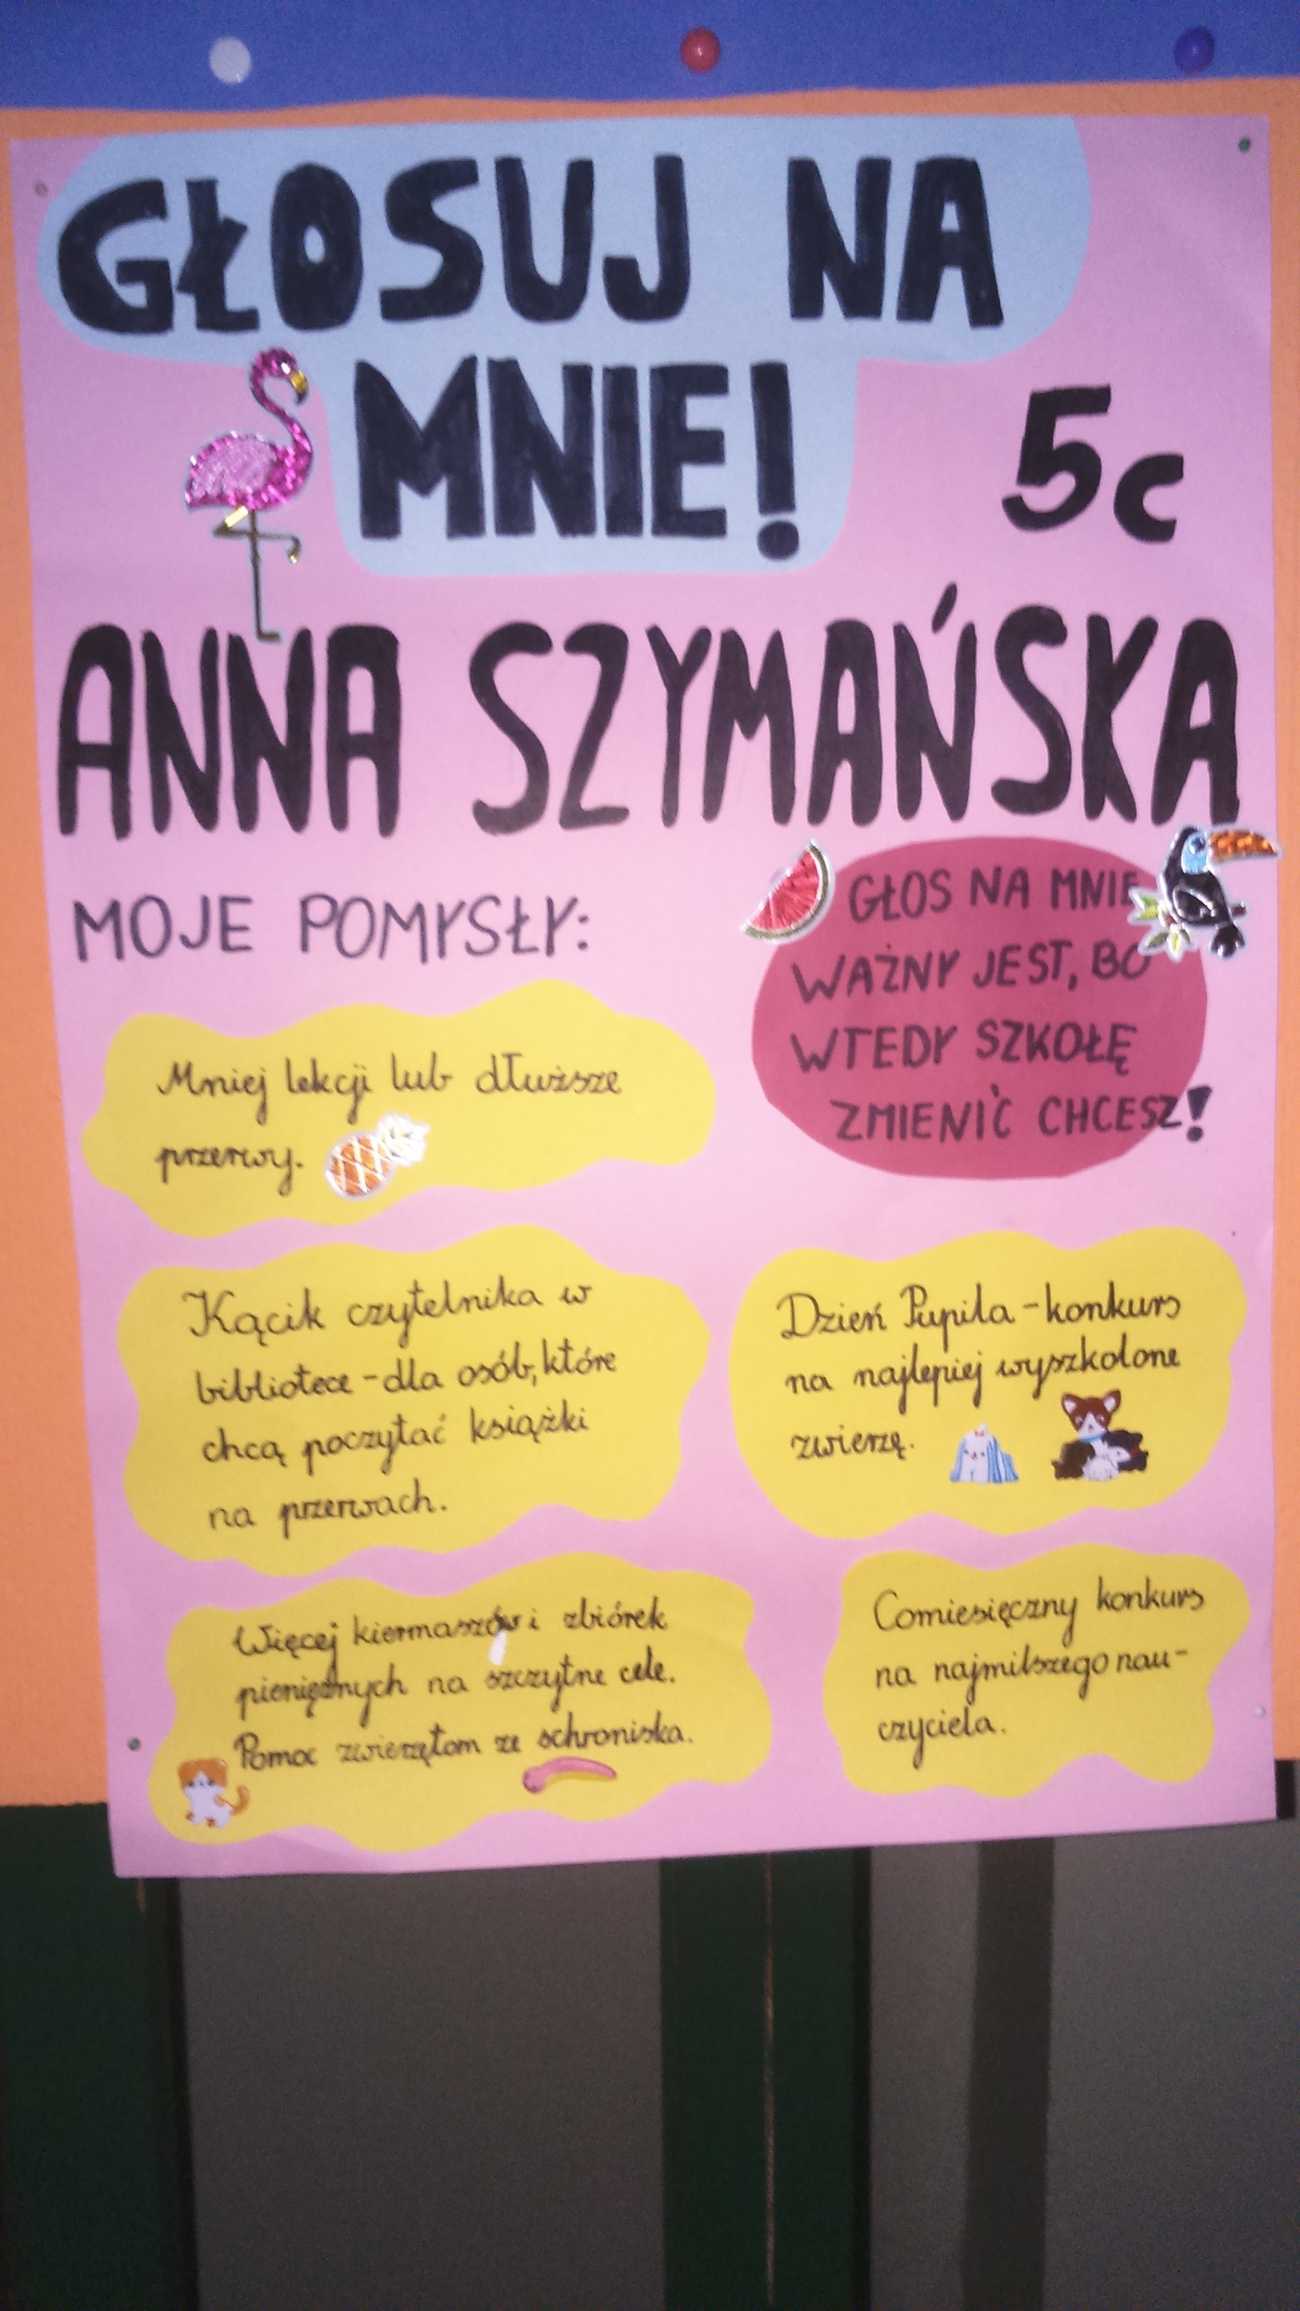 GŁOSUJ NA
MNIE!
5c
ANNA SZYMAŃSKA
MOJE POMYSŁY:
GŁOS NA MNIE
WAŻNY JEST, BO
WTEDY SZKOŁĘ
ZMIENIĆ CHCESZ!
Mniej lekcji lub dłuższe
przerwy.
Kącik czytelnika w
bibliotece - dla osób, które
chcą poczytać książki
na przerwach.
Dzień Pupila - konkurs
na najlepiej wyszkolone
zwierzę.
Więcej kiermaszów i zbiórek
pieniężnych na szczytne cele.
Pomoc zwierzętom ze schroniska.
Comiesięczny konkurs
na najmilszego nau-
czyciela.